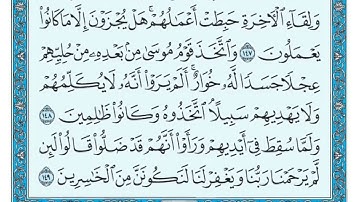 وَلِقَآءِ ٱلۡأٓخِرَةِ حَبِطَتۡ أَعۡمَٰلُهُمۡۚ هَلۡ يُجۡزَوۡنَ إِلَّا مَا كَانُواْ
يَعۡمَلُونَ ١٤٧ وَٱتَّخَذَ قَوۡمُ مُوسَىٰ مِنۢ بَعۡدِهِۦ مِنۡ حُلِيِّهِمۡ
عِجۡلٗا جَسَدٗا لَّهُۥ خُوَارٌۚ أَلَمۡ يَرَوۡاْ أَنَّهُۥ لَا يُكَلِّمُهُمۡ
وَلَا يَهۡدِيهِمۡ سَبِيلًاۘ ٱتَّخَذُوهُ وَكَانُواْ ظَٰلِمِينَ ١٤٨
وَلَمَّا سُقِطَ فِيٓ أَيۡدِيهِمۡ وَرَأَوۡاْ أَنَّهُمۡ قَدۡ ضَلُّواْ قَالُواْ لَئِن
لَّمۡ يَرۡحَمۡنَا رَبُّنَا وَيَغۡفِرۡ لَنَا لَنَكُونَنَّ مِنَ ٱلۡخَٰسِرِينَ ١٤٩